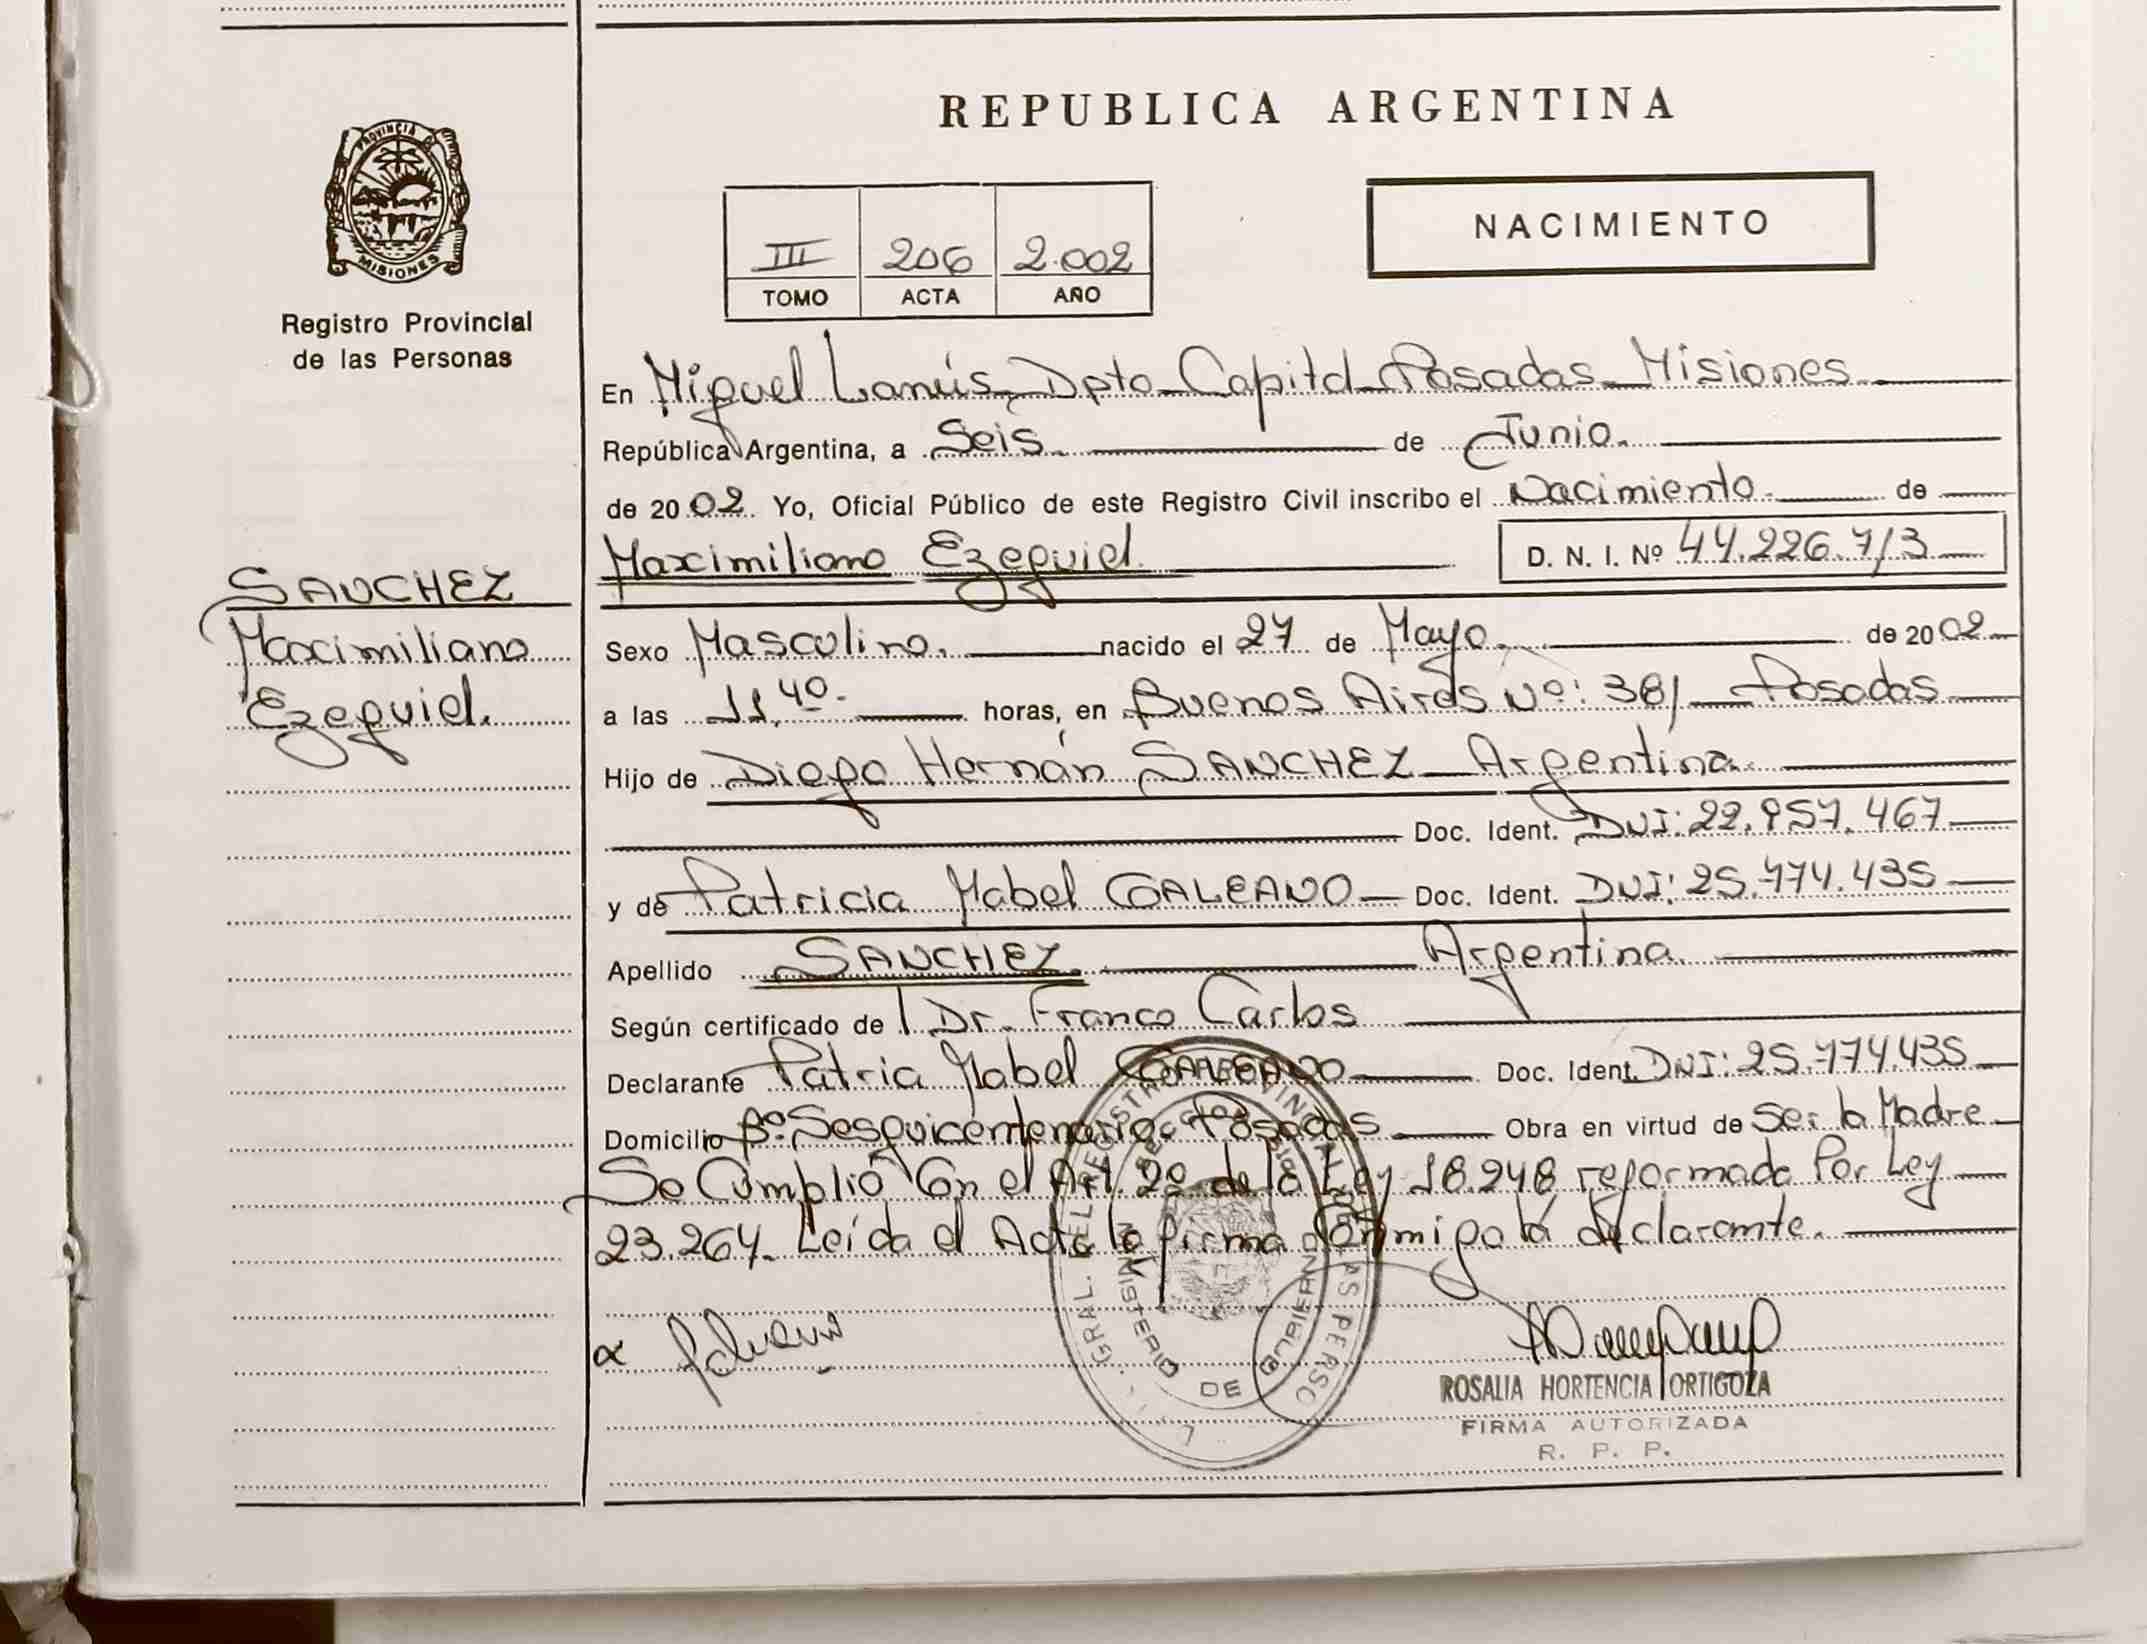 REPUBLICA ARGENTINA
PROVINCIA
MISIONES
Registro Provincial
de las Personas
NACIMIENTO
III 206 2.002
TOMO ACTA AÑO
En Miguel Lanús Dpto Capital Posadas Misiones
República Argentina, a Seis de Junio.
de 2002. Yo, Oficial Público de este Registro Civil inscribo el Nacimiento de
Maximiliano Ezequiel D. N. I. Nº 44.226.713
SANCHEZ
Maximiliano
Ezequiel.
Sexo Masculino. nacido el 27 de Mayo. de 2002
a las 11,40. horas, en Buenos Aires Nº: 381 Posadas
Hijo de Diego Hernán SANCHEZ Argentina.
Doc. Ident. DNI: 22.957.467
y de Patricia Mabel GALEANO Doc. Ident. DNI: 25.774.435
Apellido SANCHEZ. Argentina.
Según certificado de Dr. Franco Carlos
Declarante Patria Mabel GALEANO Doc. Ident. DNI: 25.774.435
Domicilio Bº Sesquicentenario. Posadas Obra en virtud de Ser la Madre
Se Cumplió Con el Art. 2º de la Ley 18.248 reformada Por Ley
23.264. Leída el Acta la firma Conmigo la declarante.
MINISTERIO DE GOBIERNO
ROSALIA HORTENCIA ORTIGOZA
FIRMA AUTORIZADA
R. P. P.